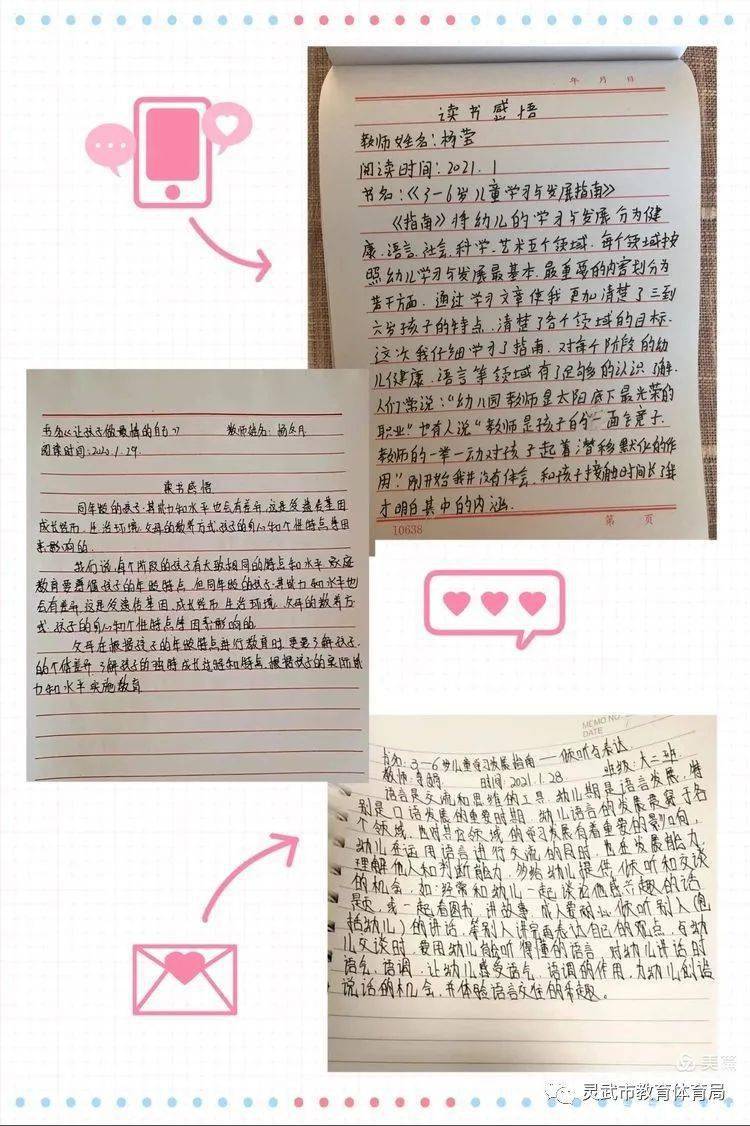 年 月 日
读书感悟
教师姓名：杨莹
阅读时间：2021.1
书名：《3-6岁儿童学习与发展指南》
《指南》将幼儿的学习与发展分为健
康、语言、社会、科学、艺术五个领域，每个领域按
照幼儿学习与发展最基本、最重要的内容划分为
若干方面。通过学习文章使我更加清楚了三到
六岁孩子的特点，清楚了各个领域的目标。
这次我仔细学习了指南，对每个阶段的幼
儿健康、语言等领域有了足够的认识了解。
人们常说："幼儿园教师是太阳底下最光荣的
职业"也有人说"教师是孩子的 一面镜子，
教师的一举一动对孩子起着潜移默化的作
用。"刚开始我并没有体会，和孩子接触时间长了我
才明白其中的内涵。
10638 第 页
书名《让孩子做最棒的自己》 教师姓名：杨
阅读时间：2020.1.29.
读书感悟
同年龄的孩子，其能力和水平也会有差异，这是受遗传基因
成长经历、生活环境、父母的教养方式、孩子的身心和个性特点等因
素影响的。
我们说，每个阶段的孩子有大致相同的特点和水平，家庭
教育要遵循孩子的年龄特点，但同年龄的孩子，其能力和水平也
会有差异，这是受遗传基因，成长经历 生活环境，父母的教养方
式，孩子的身心和个性特点等因素影响的。
父母在根据孩子的年龄特点进行教育时，更要了解孩子
的个体差异，了解孩子的独特成长过程和特点，根据孩子的实际能
力和水平实施教育
MEMO NO.
DATE
书名：3-6岁儿童学习发展指南——倾听与表达
教师：李 时间：2021.1.28 班级：大二班
语言是交流和思维的工具，幼儿期是语言发展，特
别是口语发展的重要时期，幼儿语言的发展贯穿于各
个领域，也对其它领域的学习发展有着重要的影响，
幼儿在运用语言进行交流的同时，也在发展能力，
理解他人和判断能力，多给幼儿提供倾听和交谈
的机会，如：经常和幼儿一起谈论他感兴趣的话
题，或一起看图书，讲故事，成人要 倾听别人（包
括幼儿）的讲话，等别人讲完再表达自己的观点，与幼
儿交谈时，要用幼儿能听得懂的语言，对幼儿讲话时
语气，语调，让幼儿感受语气，语调的作用，为幼儿创造
说话的机会，并体验语言交往的乐趣。
美篇
灵武市教育体育局